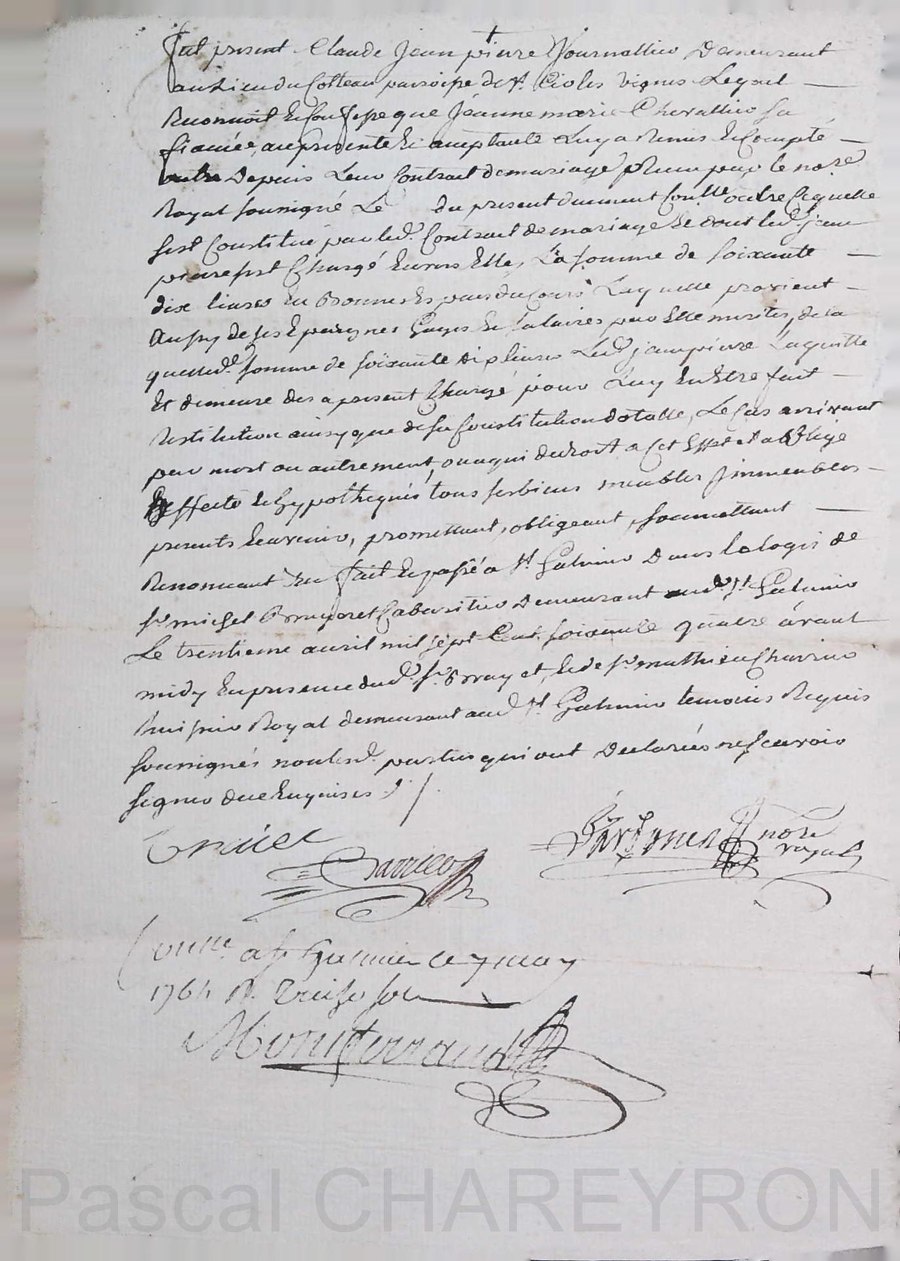 fut present Claude Jean pierre Fournattier Demeurant
au Lieu du Cotteau paroisse de St. Legal
Reconnoit Et Confesse que Jeanne marie Chevallier sa
fiancée, au presente Et aceptante Luy a Remis Et Compté
Depuis Leur Contract de mariage pour le nore.
Royal soussigné Le du present duement Conllé outre Cequelle
sest Constitué par led. Contract de mariage Et dont led. jean
pierre sest Chargé Envers Elle, La somme de soixante
dix livres En Bonnes Espaces du Cours Laquelle provient
Aussy de ses Epargnes Gages Et salaires par Elle merités, de la
quelle d. somme de soixante dix livres Led. jean pierre Laquitte
Et demeure des a present Chargé pour Luy En Etre fait
restitution ainsy que de sa Constitution dotalle, Le Cas arrivant
par mort ou autrement, ou a qui de droit a Cet Effet Et a obligé
Effecté Et hypothequé tous ses biens meubles Immeubles
presents Et avenir, promettant, obligeant, soumettant
Renonceant &a fait Et passé a St. Galmier Dans Le logis de
sr. michel Cabaretier Demeurant aud. St. Galmier
Le trentieme avril mil sept Cent soixante quatre avant
midy En presence dud. sr. Et de sr. mathieu Charrier
huissier Royal demeurant aud. St. Galmier temoins Requis
soussignés non lesd. parties qui ont Declarées ne scavoir
signer de ce Enquises
nore
royal
Conlle. a St Galmier Ce 9 may
1764 R. treise sols
Montferrand
Pascal CHAREYRON